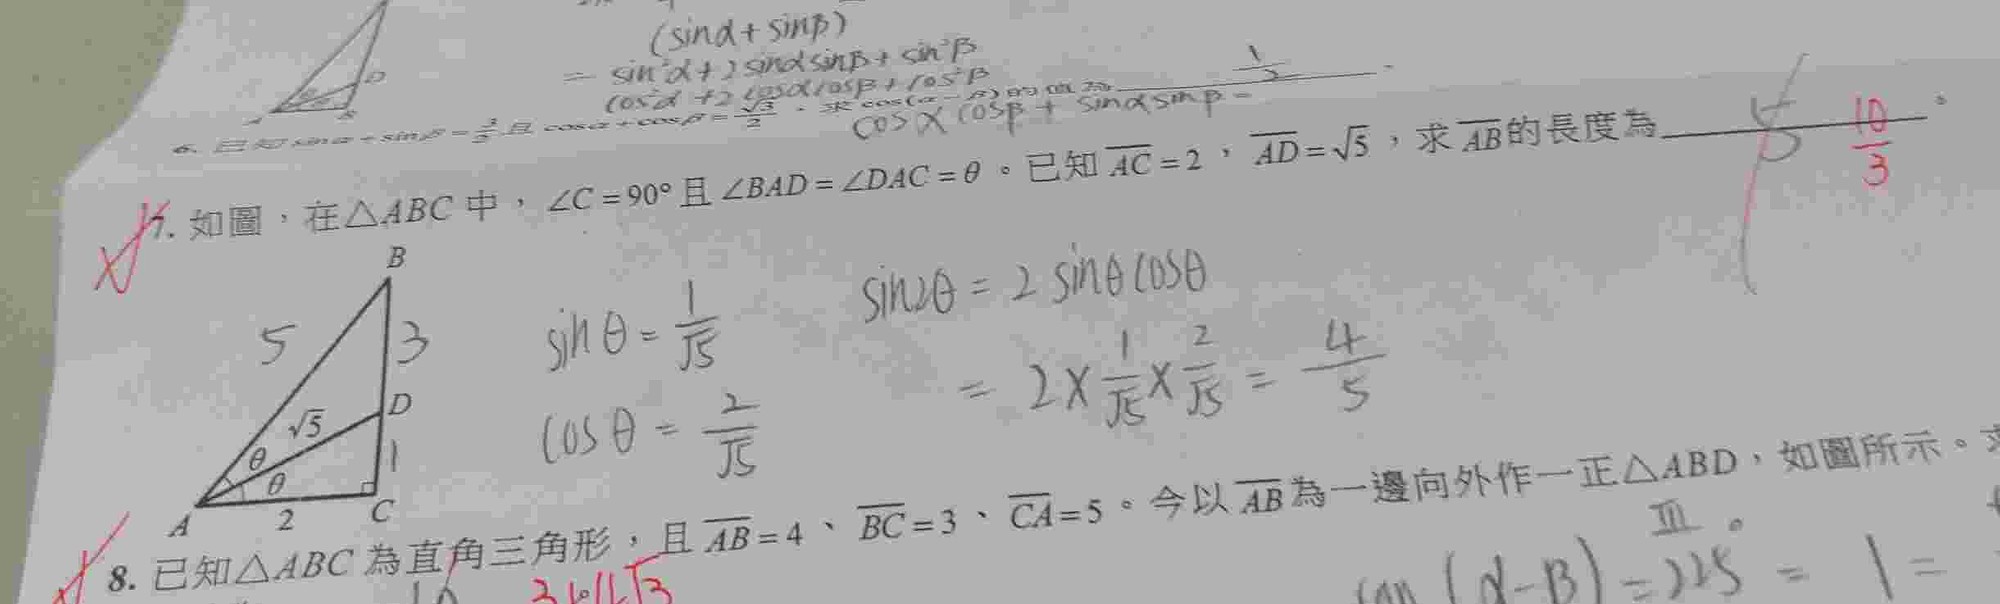 (sinα + sinβ)
= sin²α + 2 sinα sinβ + sin²β
cos²α + 2 cosα cosβ + cos²β
cosα cosβ + sinα sinβ =
1/2
6. 已知 sinα + sinβ =
且 cosα + cosβ = √3/2,求 cos(α − β) 的值為
7. 如圖,在△ABC 中,∠C = 90° 且 ∠BAD = ∠DAC = θ。已知 AC = 2,AD = √5,求 AB 的長度為 。
10/3
B
5
3
D
√5
θ
θ
1
A
2
C
sinθ = 1/√5
cosθ = 2/√5
sin2θ = 2 sinθ cosθ
= 2 × 1/√5 × 2/√5 = 4/5
8. 已知△ABC 為直角三角形,且 AB = 4、BC = 3、CA = 5。今以 AB 為一邊向外作一正△ABD,如圖所示。求
(α − β) = 225 = 1 =